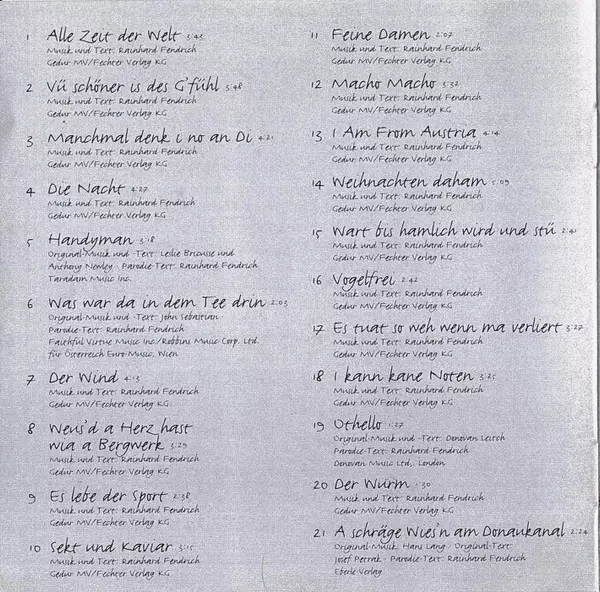 1 Alle Zeit der Welt 3:43
Musik und Text: Rainhard Fendrich
Gedur MV/Fechter Verlag KG
2 Vü schöner is des G'fühl 3:48
Musik und Text: Rainhard Fendrich
Gedur MV/Fechter Verlag KG
3 Manchmal denk i no an Di 4:21
Musik und Text: Rainhard Fendrich
Gedur MV/Fechter Verlag KG
4 Die Nacht 4:27
Musik und Text: Rainhard Fendrich
Gedur MV/Fechter Verlag KG
5 Handyman 3:18
Original-Musik und -Text: Leslie Bricusse und
Anthony Newley · Parodie-Text: Rainhard Fendrich
Taradam Music Inc.
6 Was war da in dem Tee drin 2:03
Original-Musik und -Text: John Sebastian
Parodie-Text: Rainhard Fendrich
Faithful Virtue Music Inc./Robbins Music Corp. Ltd.
für Österreich Euro-Music, Wien
7 Der Wind 4:13
Musik und Text: Rainhard Fendrich
Gedur MV/Fechter Verlag KG
8 Weus'd a Herz hast
wia a Bergwerk 3:29
Musik und Text: Rainhard Fendrich
Gedur MV/Fechter Verlag KG
9 Es lebe der Sport 2:38
Musik und Text: Rainhard Fendrich
Gedur MV/Fechter Verlag KG
10 Sekt und Kaviar 3:15
Musik und Text: Rainhard Fendrich
Gedur MV/Fechter Verlag KG
11 Feine Damen 2:07
Musik und Text: Rainhard Fendrich
Gedur MV/Fechter Verlag KG
12 Macho Macho 3:32
Musik und Text: Rainhard Fendrich
Gedur MV/Fechter Verlag KG
13 I Am From Austria 4:14
Musik und Text: Rainhard Fendrich
Gedur MV/Fechter Verlag KG
14 Weihnachten daham 5:09
Musik und Text: Rainhard Fendrich
Gedur MV/Fechter Verlag KG
15 Wart bis hamlich wird und stü
Musik und Text: Rainhard Fendrich
Gedur MV/Fechter Verlag KG
16 Vogelfrei 2:42
Musik und Text: Rainhard Fendrich
Gedur MV/Fechter Verlag KG
17 Es tuat so weh wenn ma verliert 3:27
Musik und Text: Rainhard Fendrich
Gedur MV/Fechter Verlag KG
18 I kann kane Noten 3:25
Musik und Text: Rainhard Fendrich
Gedur MV/Fechter Verlag KG
19 Othello 1:27
Original-Musik und -Text: Donovan Leitch
Parodie-Text: Rainhard Fendrich
Donovan Music Ltd, London
20 Der Wurm 1:30
Musik und Text: Rainhard Fendrich
Gedur MV/Fechter Verlag KG
21 A schräge Wies'n am Donaukanal 2:24
Original-Musik: Hans Lang · Original-Text:
Josef Petrak · Parodie-Text: Rainhard Fendrich
Eberle-Verlag